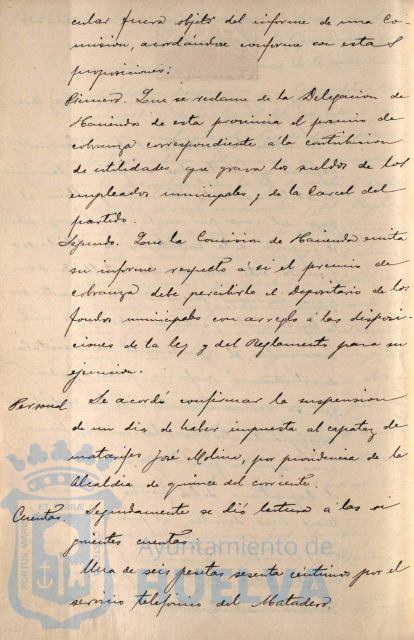 cular fuera objeto del informe de una Co-
mision, acordándose conforme con estas
proposiciones:
Primero. Que se reclame de la Delegacion de
Hacienda de esta provincia el premio de
cobranza correspondiente á la contribucion
de utilidades que grava los sueldos de los
empleados municipales y de la Carcel del
partido.
Segundo. Que la Comision de Hacienda emita
su informe respecto á si el premio de
cobranza debe percibirlo el Depositario de los
fondos municipales con arreglo á las disposi-
ciones de la ley y del Reglamento para su
ejecucion.
Personal Se acordó confirmar la suspension
de un dia de haber impuesta al capataz de
matarifes José Molina, por providencia de la
Alcaldia de quince del corriente.
Cuentas. Seguidamente se dió lectura á las si
guientes cuentas
Una de seis pesetas sesenta céntimos por el
servicio telefónico del Matadero.
Ayuntamiento de
HUELVA
PORTUS MARIS